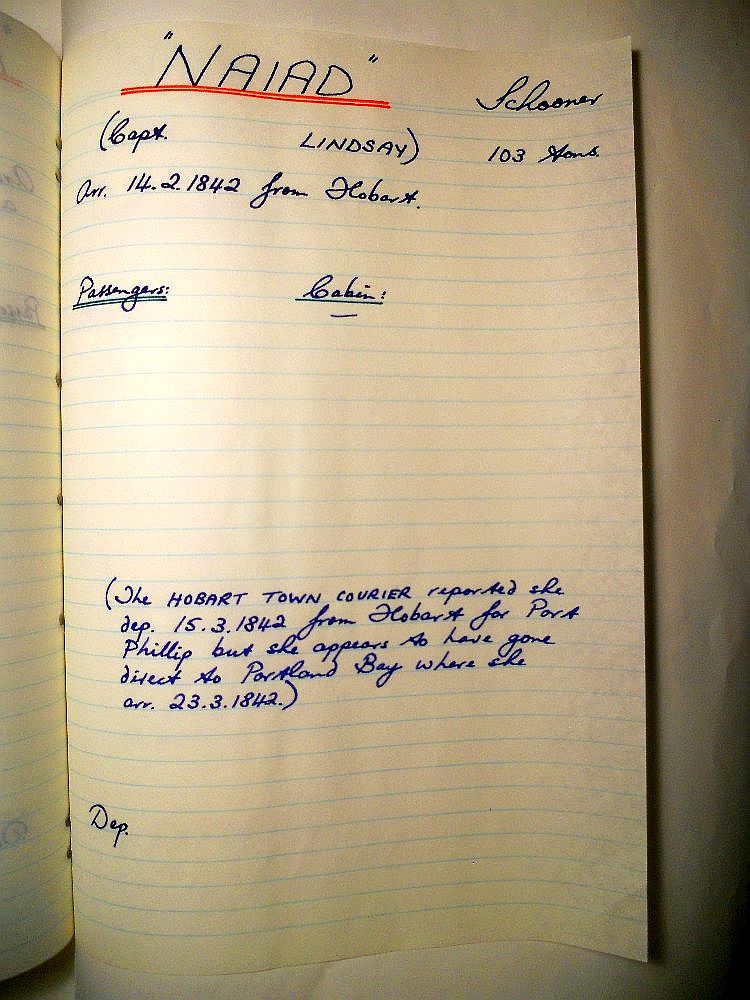 "NAIAD"
Schooner
(Capt. LINDSAY) 103 tons.
Arr. 14.2.1842 from Hobart.
Passengers: Cabin:
(The HOBART TOWN COURIER reported she
dep. 15.3.1842 from Hobart for Port
Phillip but she appears to have gone
direct to Portland Bay where she
arr. 23.3.1842.)
Dep.